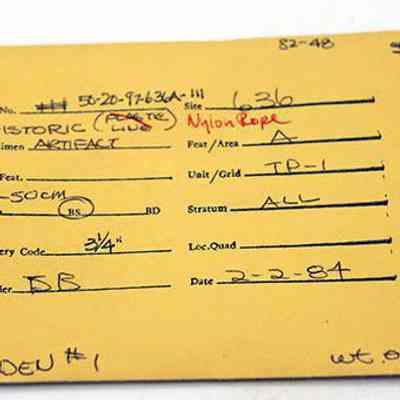 82-48
No. 50-20-97-636A-111 Site 636
ISTORIC (PLASTIC LINE) Nylon Rope
imen ARTIFACT Feat/Area A
Feat. Unit/Grid TP-1
-50cm
BS BD Stratum ALL
ery Code 3 1/4" Loc.Quad
er DB Date 2-2-84
DEN #1 wt.